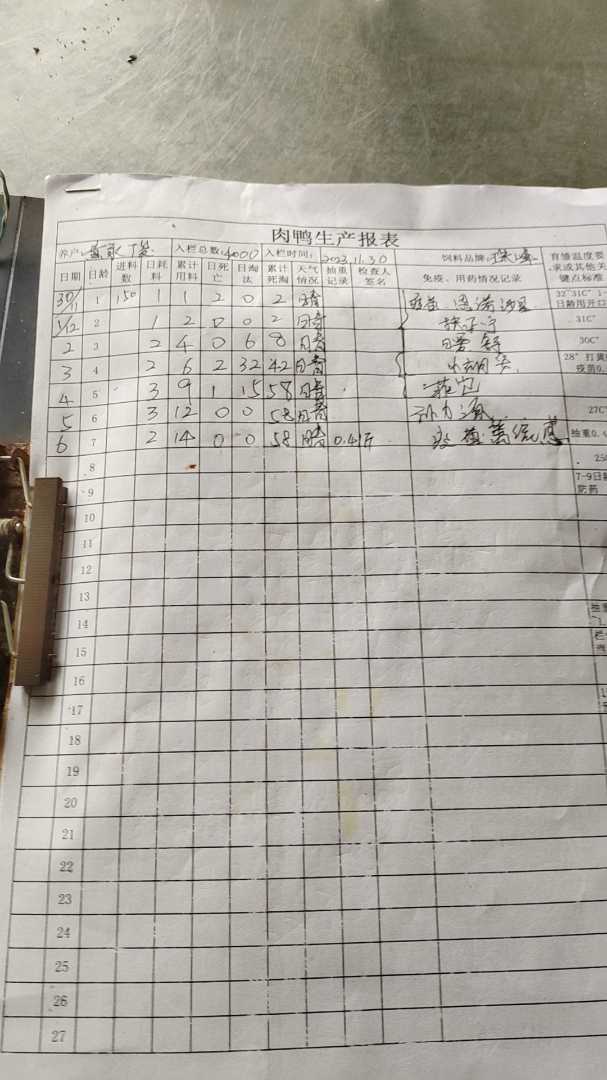 肉鸭生产报表
养户: 入栏总数: 4000 入栏时间: 2023.11.30 饲料品牌: 育雏温度要求或其他关键点标准
日期 日龄 进料数 日耗料 累计用料 日死亡 日淘汰 累计死淘 天气情况 抽重记录 检查人签名 免疫、用药情况记录
30/11 1 150 1 1 2 0 2 晴 疫苗 32~31C° 1- 日龄用开口
1/12 2 1 2 0 0 2 晴 31C°
2 3 2 4 0 6 8 晴 30C°
3 4 2 6 2 32 42 晴 28° 打黄 疫苗0.
4 5 3 9 1 15 58 晴
5 6 3 12 0 0 58 晴 27C°
6 7 2 14 0 0 58 晴 0.4斤 疫苗 抽重0.
8 25
9 7-9日 防药
10
11
12
13
14 抽重
15
16
17
18
19
20
21
22
23
24
25
26
27